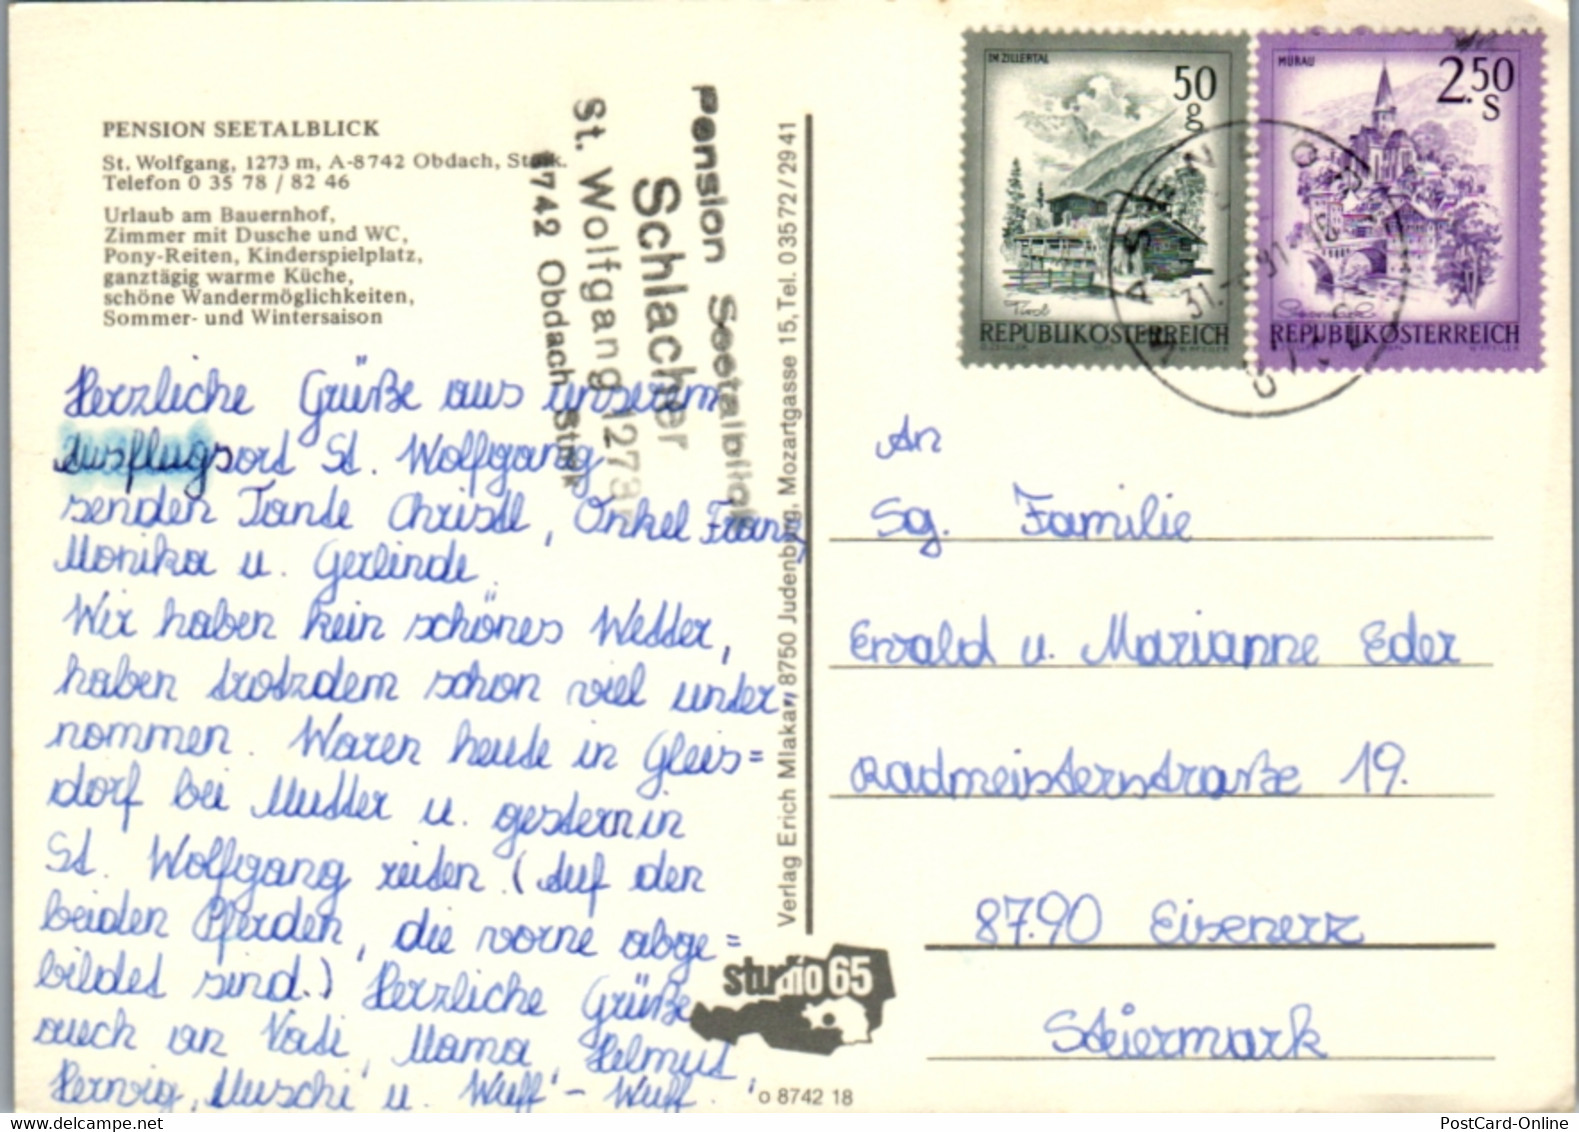 PENSION SEETALBLICK
St. Wolfgang, 1273 m, A-8742 Obdach, Stmk.
Telefon 0 35 78 / 82 46
Urlaub am Bauernhof,
Zimmer mit Dusche und WC,
Pony-Reiten, Kinderspielplatz,
ganztägig warme Küche,
schöne Wandermöglichkeiten,
Sommer- und Wintersaison
Pension Seetalblick
Schlacher
St. Wolfgang 1273
8742 Obdach Stmk
Herzliche Grüße aus unserem
Ausflugsort St. Wolfgang
senden Tante Christl, Onkel Franz,
Monika u. Gerlinde.
Wir haben kein schönes Wetter,
haben trotzdem schon viel unter
nommen. Waren heute in Gleis=
dorf bei Mutter u. gestern in
St. Wolfgang reiten. (Auf den
beiden Pferden, die vorne abge=
bildet sind.) Herzliche Grüße
auch an Vati, Mama, Helmut,
Herwig, Muschi u. Wuff-Wuff.
Verlag Erich Mlakar, 8750 Judenburg, Mozartgasse 15, Tel. 0 35 72 / 29 41
studio 65
o 8742 18
IM ZILLERTAL
50 g
Tirol
REPUBLIK ÖSTERREICH
MURAU
2.50 S
Steiermark
REPUBLIK ÖSTERREICH
An
Sg. Familie
Ewald u. Marianne Eder
Radmeisterstraße 19.
8790 Eisenerz
Steiermark
PostCard-Online